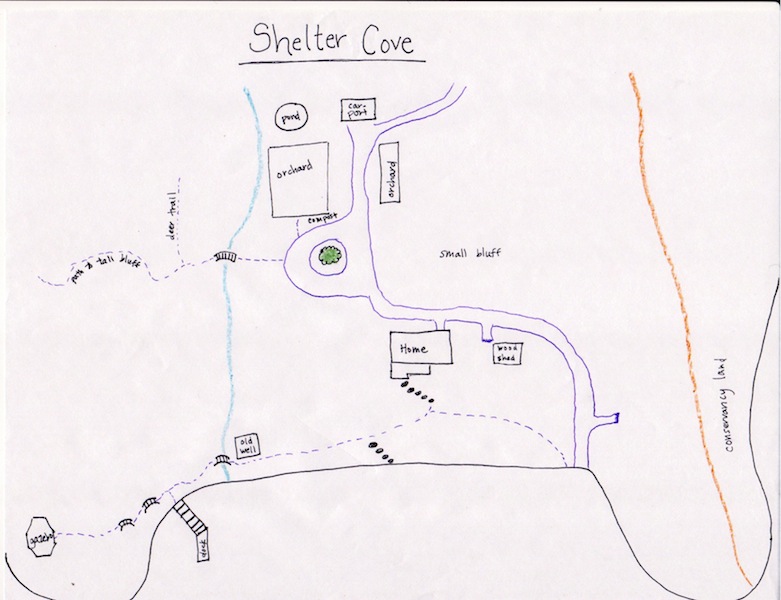 Shelter Cove
pond
car-
port
orchard
orchard
compost
deer trail
path to tall bluff
small bluff
Home
wood
shed
conservancy land
old
well
gazebo
dock